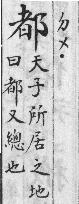 ㄉㄨ.
都天子所居之地
曰都又總也